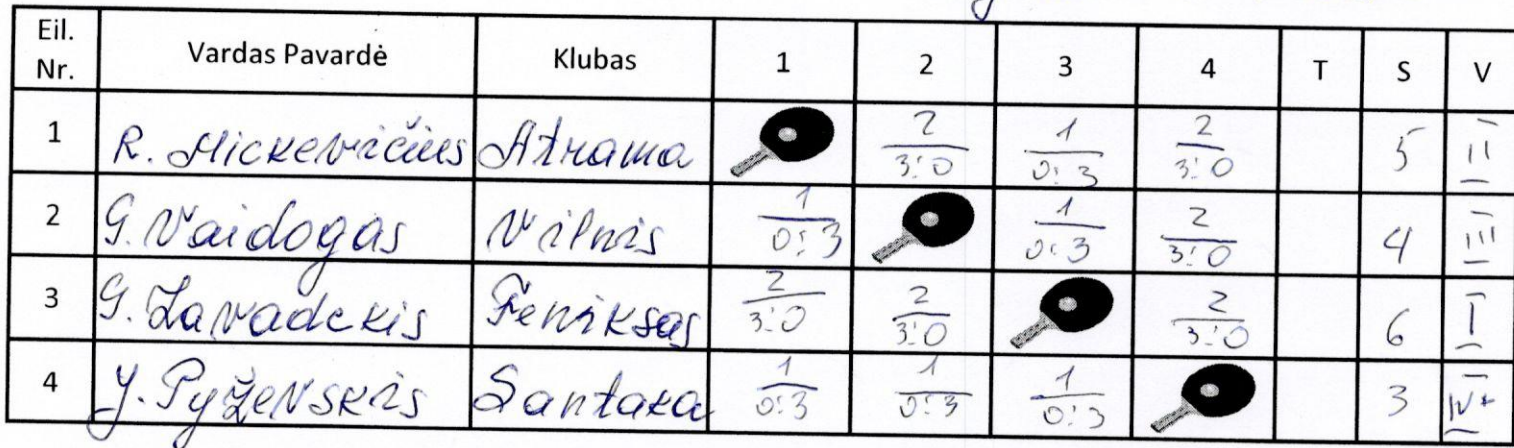 Eil. Nr. Vardas Pavardė Klubas 1 2 3 4 T S V
1 R. Mickevičius Atrama 2 3:0 1 0:3 2 3:0 5 II
2 G. Vaidogas Vilnis 1 0:3 1 0:3 2 3:0 4 III
3 G. Zavadckis Feniksas 2 3:0 2 3:0 2 3:0 6 I
4 Santaka 1 0:3 1 0:3 1 0:3 3 IV